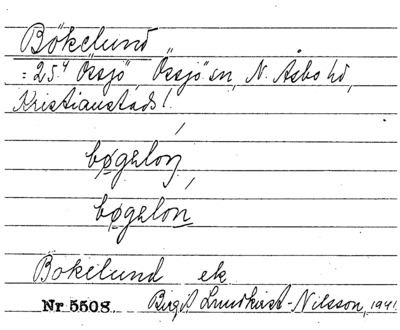 Bökelund
: 25⁴ Össjö, Össjö sn, N. Åsbo hd,
Kristianstads l.
bøgəloŋ
bøgəlon
Bökelund ek
Nr 5508. Birgit Lundkvist-Nilsson, 1941